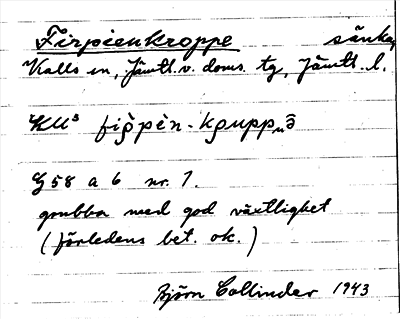 Firpienkroppe sänka
Kalls sn, Jämtl. v. doms. tg, Jämtl. l.
KU³
G 58 a b nr. 7.
grubba med god växtlighet
(förledens bet. ok.)
Björn Collinder 1943